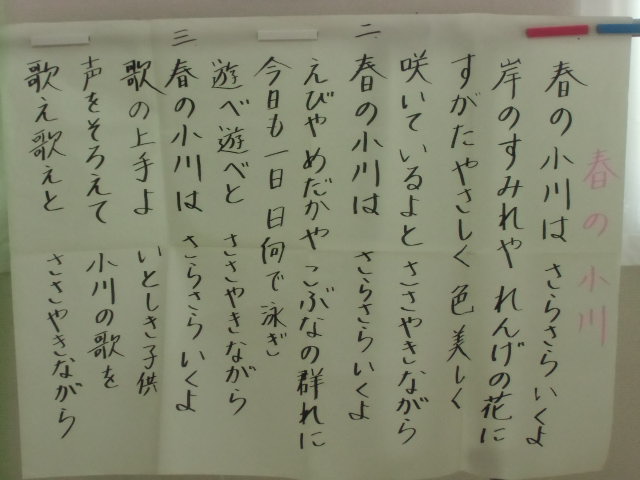 春の小川
春の小川は さらさらいくよ
岸のすみれや れんげの花に
すがたやさしく 色美しく
咲いているよと ささやきながら
二 春の小川は さらさらいくよ
えびやめだかや こぶなの群れに
今日も一日 日何で泳ぎ
遊べ遊べと ささやきながら
三 春の小川は さらさらいくよ
歌の上手よ いとしき子供
声をそろえて 小川の歌を
歌え歌えと ささやきながら